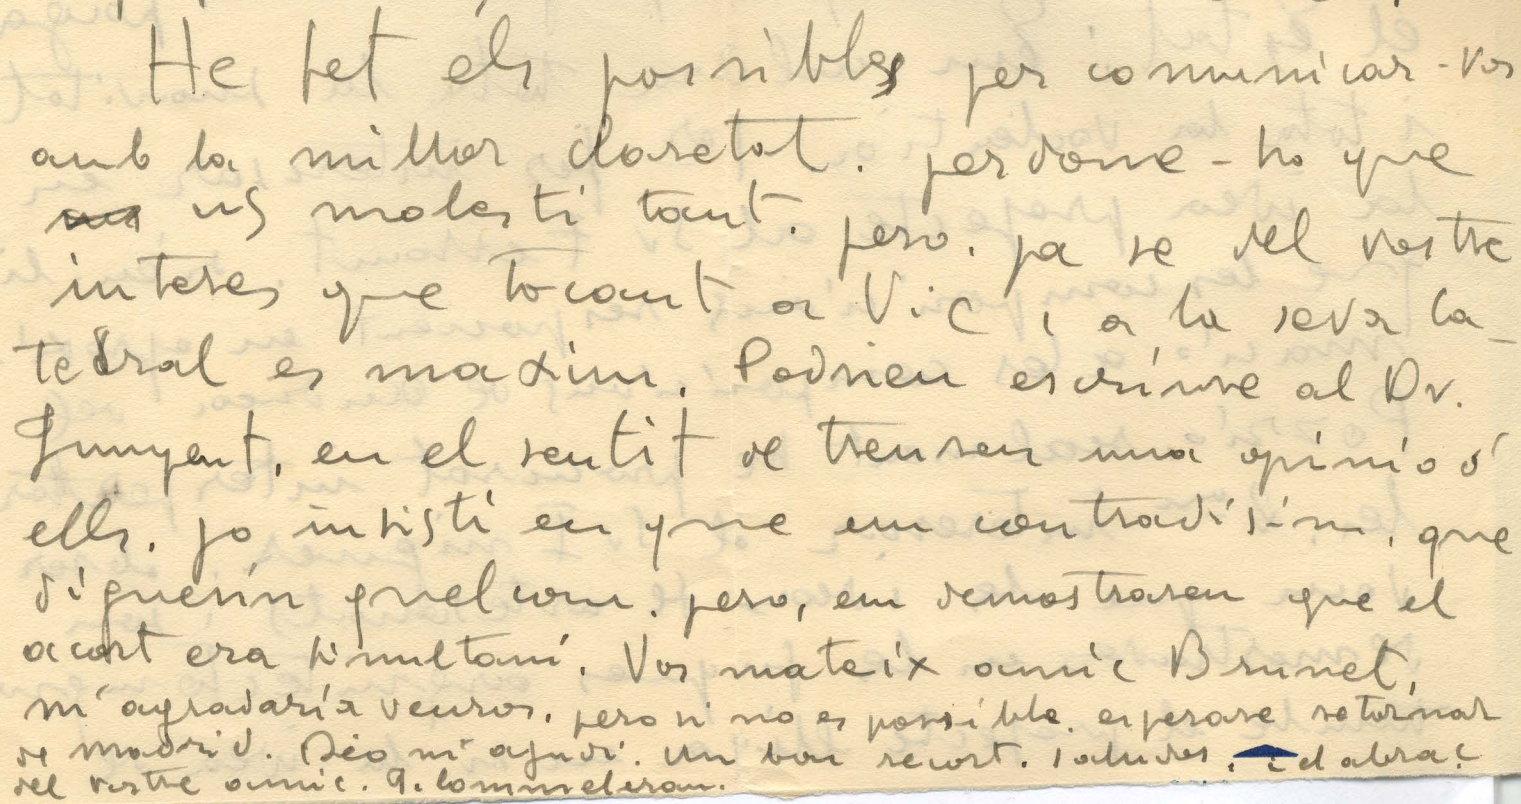 He fet els possibles per comunicar-vos
amb la millor claretat. perdone-ho que
us molesti tant. pero. ja se del vostre
interes que tocant a Vic i a la seva Ca-
tedral es maxim. Podrieu escriure al Dr.
Junyent, en el sentit de treuren una opinio d'
ells. jo insisti en que em contradisin, que
diguesin quelcom. pero, em demostraren que el
acort era simultani. Vos mateix amic Brunet,
m'agradaria veuros. pero si no es possible. esperare retornar
de madrid. Deo m'ajudi. Un bon recort. saludos. i el abraç
del vostre amic.